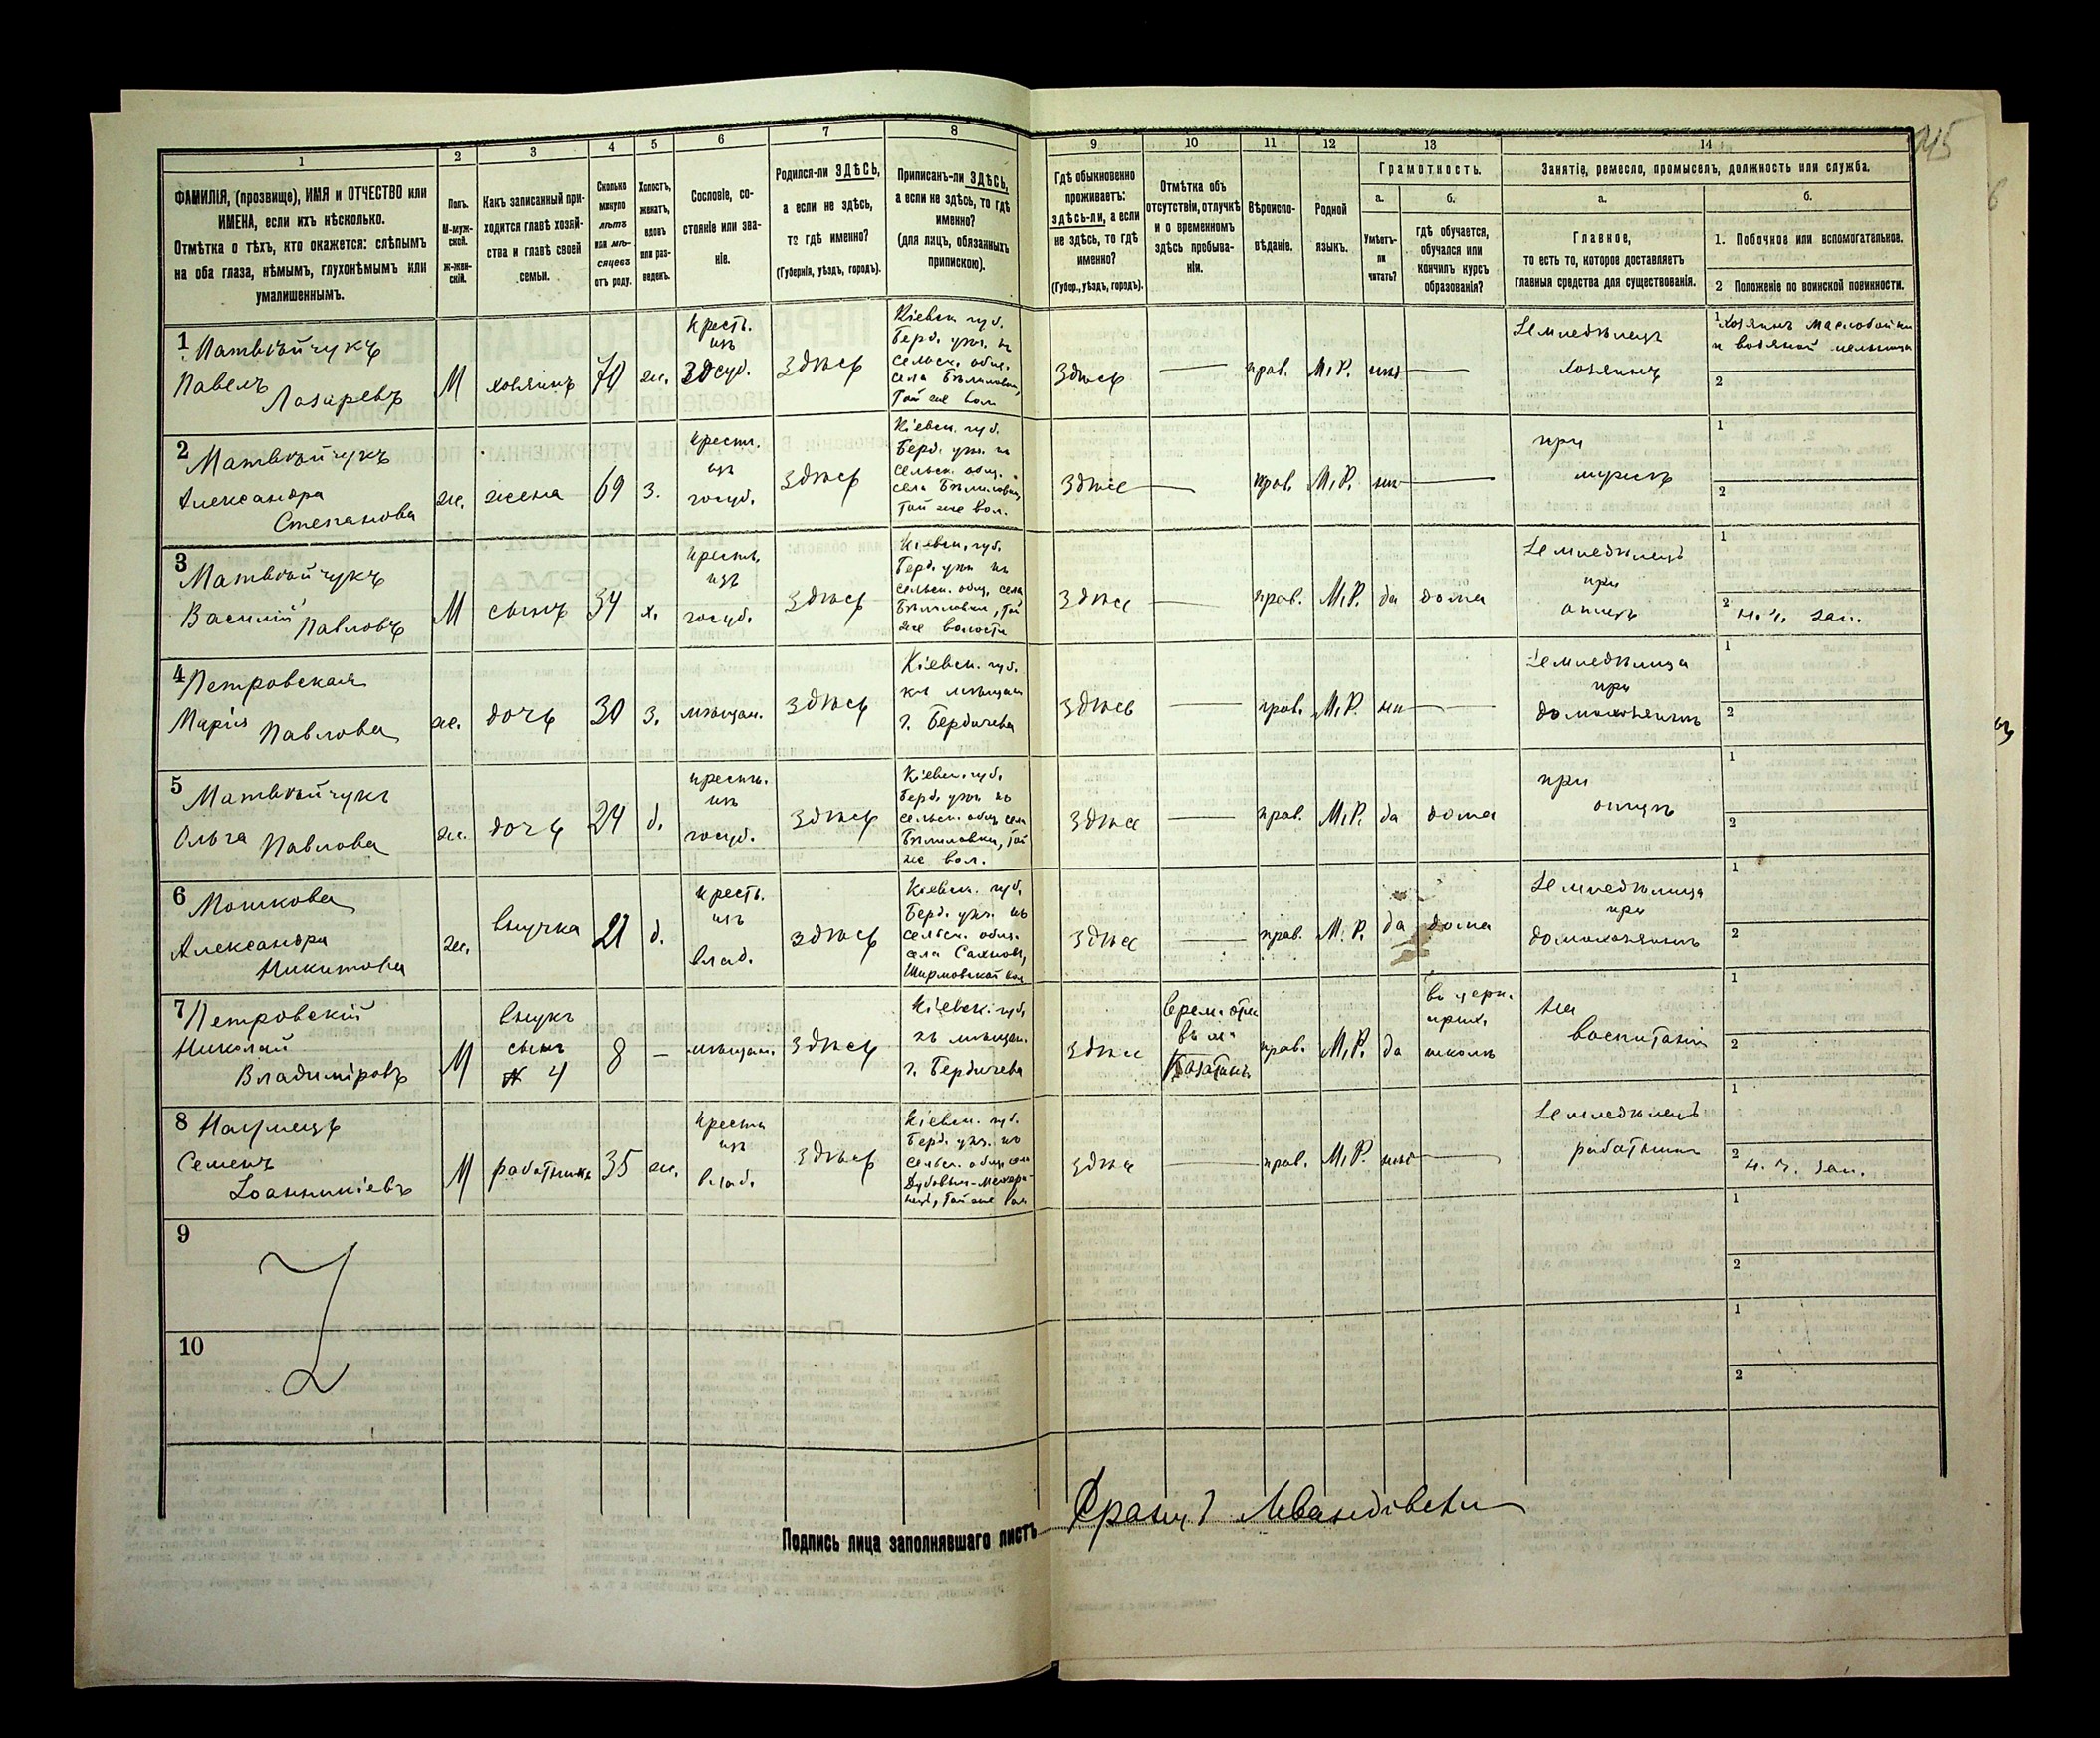 1
2
3
4
5
6
7
8
9
10
11
12
13
14
ФАМИЛІЯ, (прозвище), ИМЯ и ОТЧЕСТВО или
ИМЕНА, если ихъ нѣсколько.
Отмѣтка о тѣхъ, кто окажется: слѣпымъ
на оба глаза, нѣмымъ, глухонѣмымъ или
умалишеннымъ.
Полъ.
М-муж-
ской.
ж-жен-
скій.
Какъ записанный при-
ходится главѣ хозяй-
ства и главѣ своей
семьи.
Сколько
минуло
лѣтъ
или мѣ-
сяцевъ
отъ роду.
Холостъ,
женатъ,
вдовъ
или раз-
веденъ.
Сословіе, со-
стояніе или зва-
ніе.
Родился-ли ЗДѢСЬ,
а если не здѣсь,
то гдѣ именно?
(Губернія, уѣздъ, городъ).
Приписанъ-ли ЗДѢСЬ,
а если не здѣсь, то гдѣ
именно?
(для лицъ, обязанныхъ
припискою).
Гдѣ обыкновенно
проживаетъ:
здѣсь-ли, а если
не здѣсь, то гдѣ
именно?
(Губер., уѣздъ, городъ).
Отмѣтка объ
отсутствіи, отлучкѣ
и о временномъ
здѣсь пребыва-
ніи.
Вѣроиспо-
вѣданіе.
Родной
языкъ.
Грамотность.
а.
Умѣетъ-
ли
читать?
б.
гдѣ обучается,
обучался или
кончилъ курсъ
образованія?
Занятіе, ремесло, промыселъ, должность или служба.
а.
Главное,
то есть то, которое доставляетъ
главныя средства для существованія.
б.
1. Побочное или вспомогательное.
2 Положеніе по воинской повинности.
1
Матвѣйчукъ
Павелъ
Лазаревъ
М
хозяинъ
70
ж.
крест.
изъ
госуд.
здѣсь
Кіевск. губ.
Берд. уѣз. къ
сельск. общ.
села Бѣлиловки,
той же вол.
здѣсь
—
прав.
М.Р.
нѣт
—
Землѣделецъ
хозяинъ
1 хозяинъ маслобойни
и водяной мельницы
2
2
Матвѣйчукъ
Александра
Степанова
ж.
жена
69
з.
крест.
изъ
госуд.
здѣсь
Кіевск. губ.
Берд. уѣз. къ
сельск. общ.
села Бѣлиловки,
той же вол.
здѣсь
—
прав.
М.Р.
нѣт
—
при
мужѣ
1
2
3
Матвѣйчукъ
Василій Павловъ
М
сынъ
34
х.
крест.
изъ
госуд.
здѣсь
Кіевск. губ.
Берд. уѣз. къ
сельск. общ. села
Бѣлиловки, той
же волости
здѣсь
—
прав.
М.Р.
да
дома
Земледѣлецъ
при
отцѣ
1
2 н. ч. зап.
4
Петровская
Марія Павлова
ж.
дочь
30
з.
мѣщан.
здѣсь
Кіевск. губ.
къ мѣщан.
г. Бердичева
здѣсь
—
прав.
М.Р.
нѣт
—
Земледѣлица
при
домохозяинѣ
1
2
5
Матвѣйчукъ
Ольга Павлова
ж.
дочь
24
д.
крест.
изъ
госуд.
здѣсь
Кіевск. губ.
Берд. уѣз. къ
сельск. общ. села
Бѣлиловки, той
же вол.
здѣсь
—
прав.
М.Р.
да
дома
при
отцѣ
1
2
6
Мошкова
Александра
Никитова
ж.
внучка
21
д.
крест.
изъ
влад.
здѣсь
Кіевск. губ.
Берд. уѣз. къ
сельск. общ.
села
Ширмовской вол.
здѣсь
—
прав.
М.Р.
да
дома
Земледѣлица
при
домохозяинѣ
1
2
7
Петровскій
Николай
Владиміровъ
М
внукъ
сынъ
№ 4
8
—
мѣщан.
здѣсь
Кіевск. губ.
къ мѣщан.
г. Бердичева
здѣсь
врем. отл.
въ м.
Казатинъ
прав.
М.Р.
да
въ церк.
прих.
школѣ
На
воспитаніи
1
2
8
Семенъ
Іоанникіевъ
М
работникъ
35
ж.
крест.
изъ
влад.
здѣсь
Кіевск. губ.
Берд. уѣз. къ
сельск. общ. села
той же вол.
здѣсь
—
прав.
М.Р.
нѣт
—
Земледѣлецъ
работникъ
1
2 н. ч. зап.
9
1
2
10
1
2
Подпись лица заполнявшаго листъ